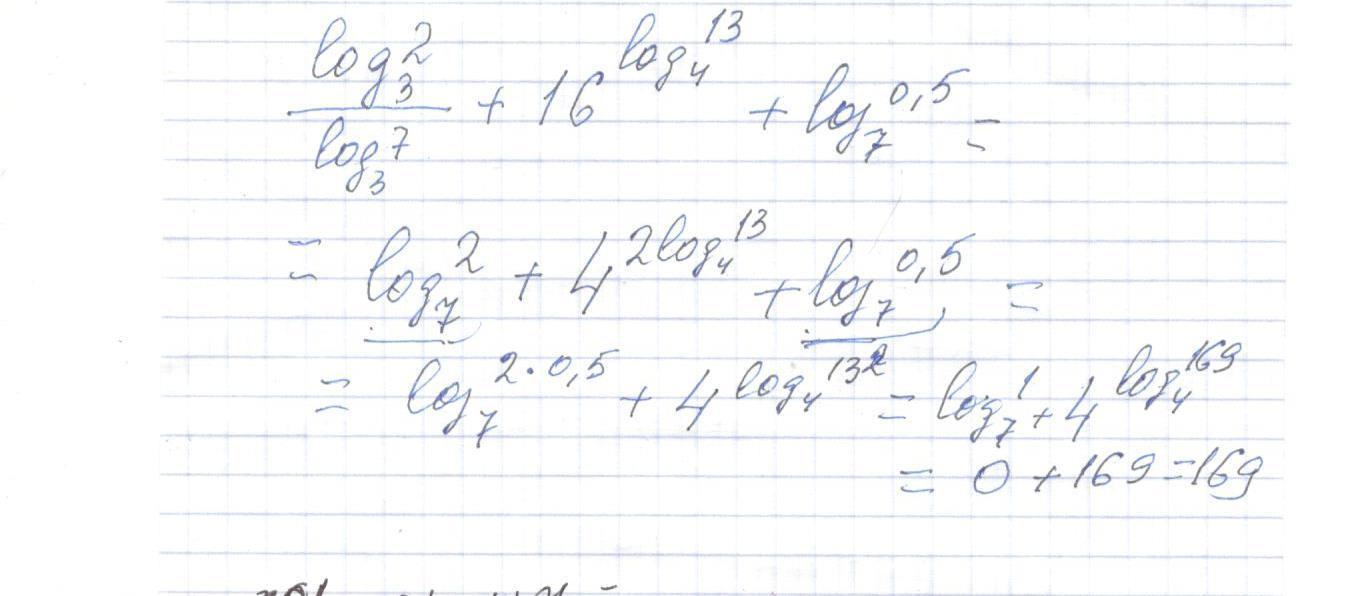 log₃2 / log₃7 + 16^(log₄13) + log₇0,5 =
= log₇2 + 4^(2log₄13) + log₇0,5 =
= log₇2·0,5 + 4^(log₄13²) = log₇1 + 4^(log₄169)
= 0 + 169 = 169